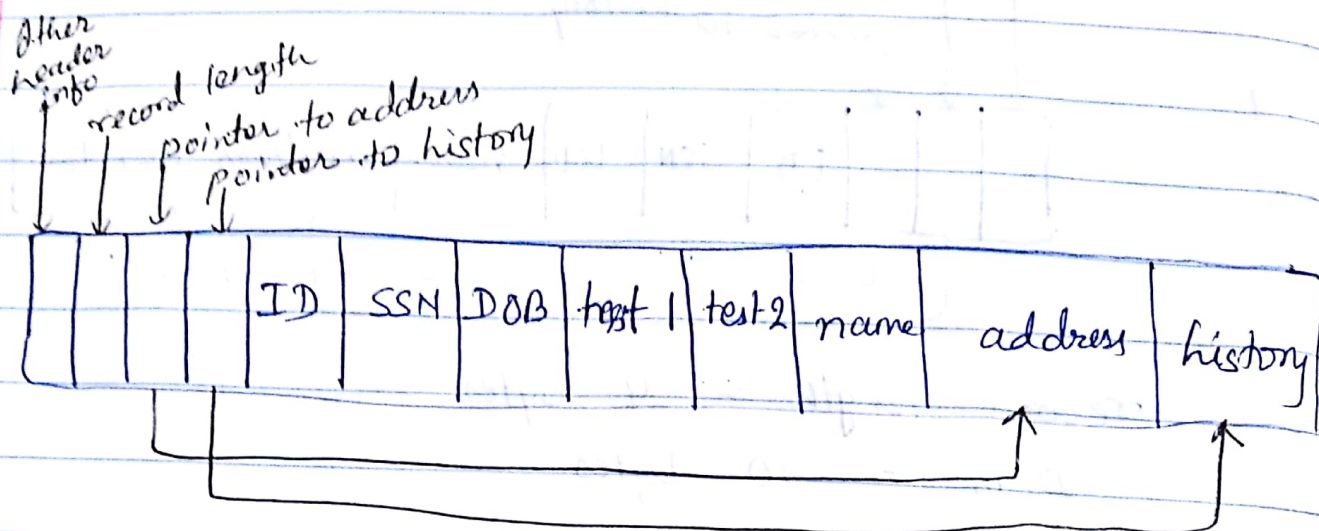 Other
header
info
record length
pointer to address
pointer to history
ID SSN DOB test 1 test 2 name address history